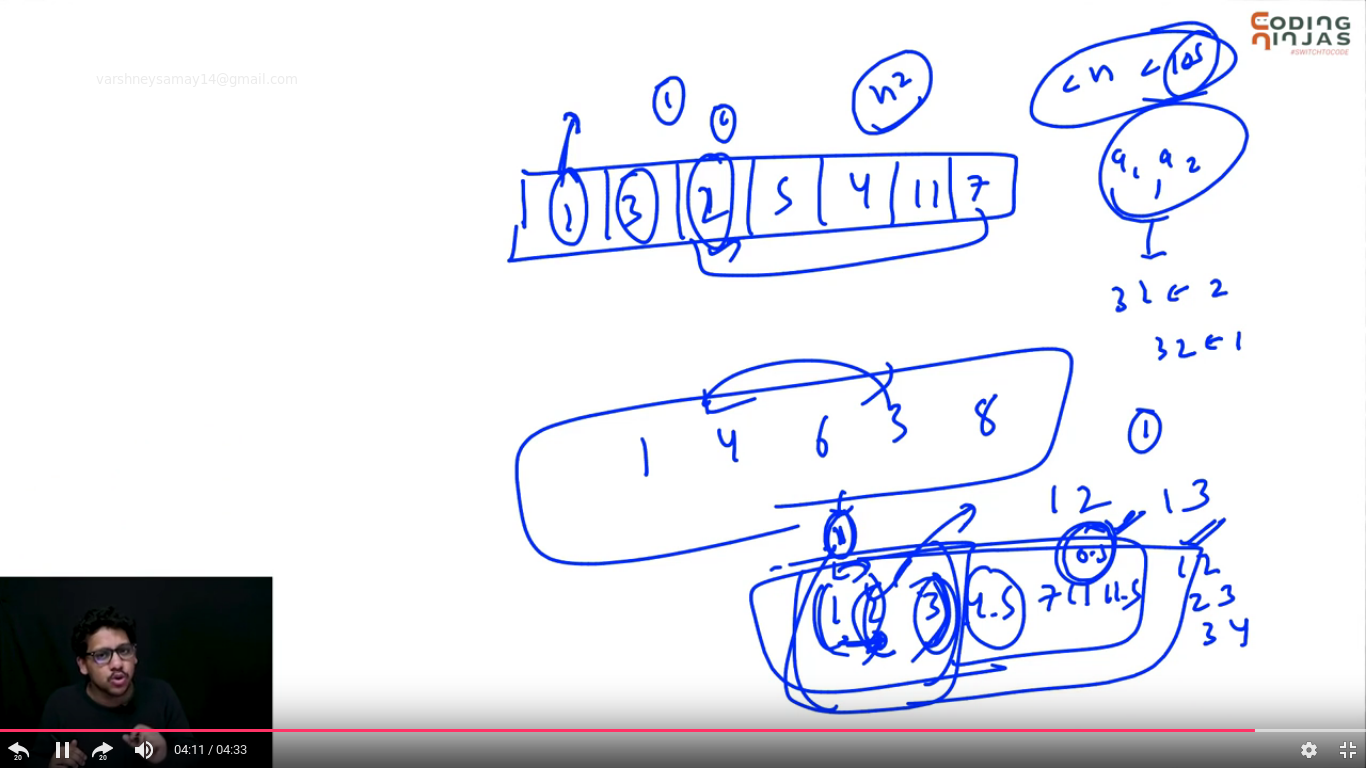 CODING
NINJAS
#SWITCHTOCODE
varshneysamay14@gmail.com
< n < 105
n²
1
1 3 2 5 4 11 7
a1, a2
3 2 ← 1
1 4 6 3 8
1
1 2
1 3
0.5
1 2
1 2 3 4.5 7 11 11.5
2 3
3 4
20
20
04:11 / 04:33